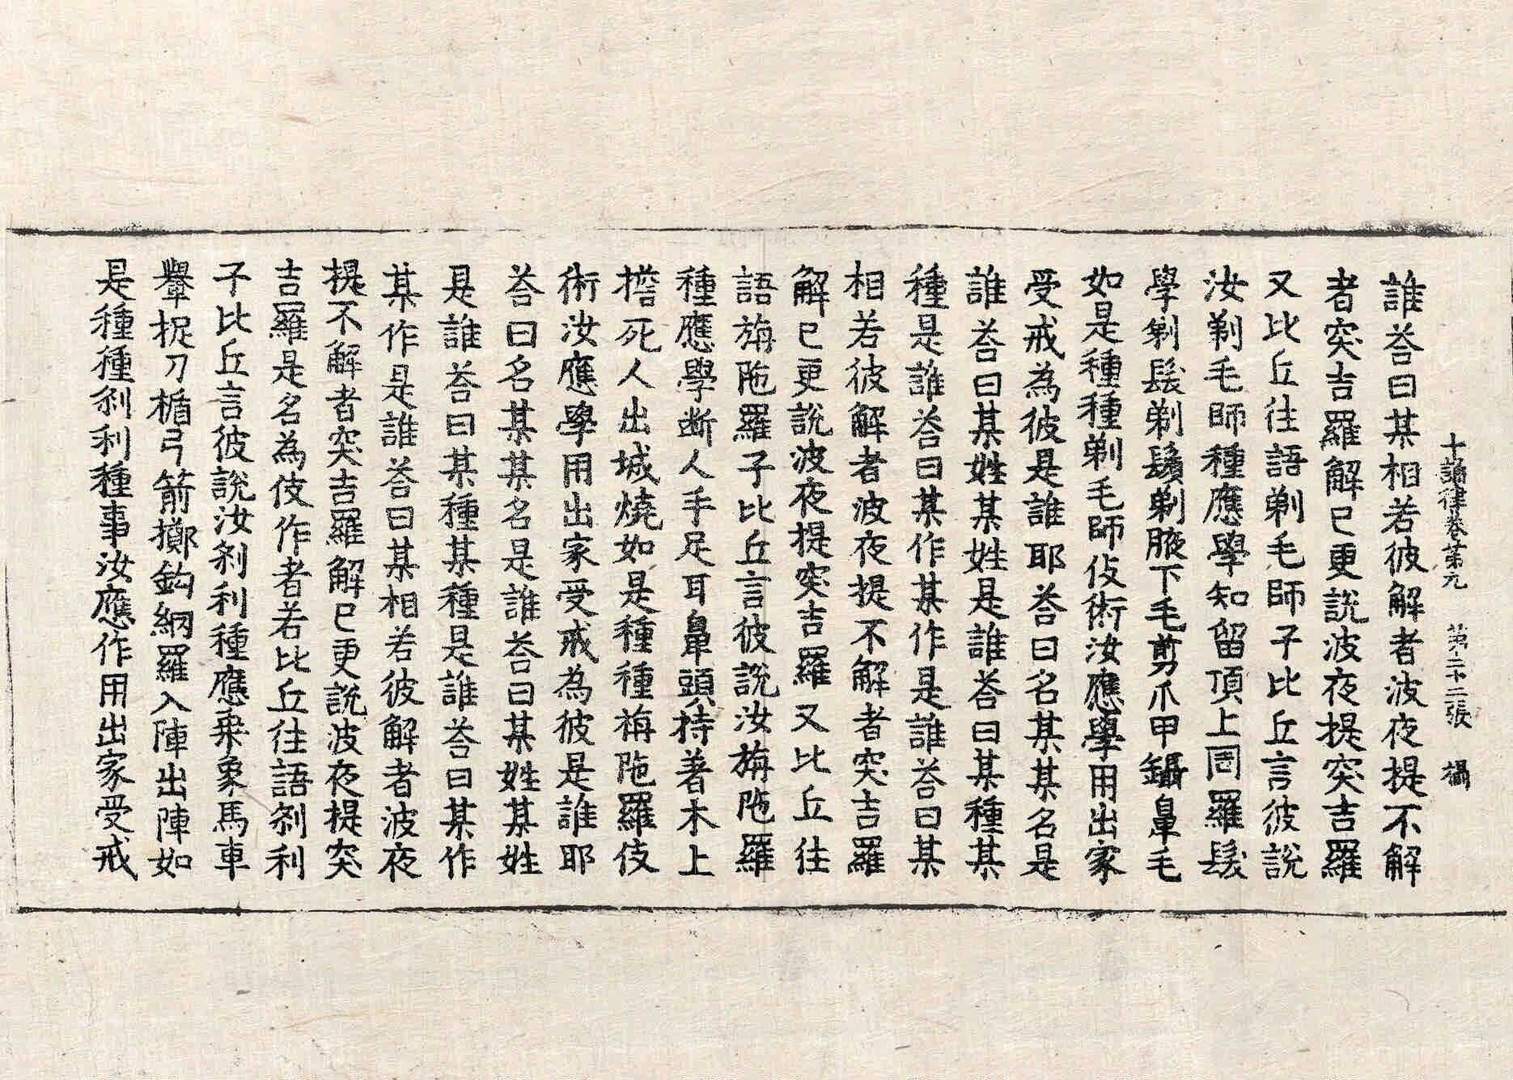 十誦律卷第九　第二十二張　攝
誰荅曰某相若彼解者波夜提不解
者突吉羅解已更說波夜提突吉羅
又比丘往語剃毛師子比丘言彼說
汝剃毛師種應學知留頂上周羅髮
學剃髮剃鬚剃腋下毛剪爪甲鑷鼻毛
如是種種剃毛師伎術汝應學用出家
受戒為彼是誰耶荅曰名某某名是
誰荅曰某姓某姓是誰荅曰某種某
種是誰荅曰某作某作是誰荅曰某
相若彼解者波夜提不解者突吉羅
解已更說波夜提突吉羅又比丘往
語旃陁羅子比丘言彼說汝旃陁羅
種應學斷人手足耳鼻頭持著木上
擔死人出城燒如是種種旃陁羅伎
術汝應學用出家受戒為彼是誰耶
荅曰名某某名是誰荅曰某姓某姓
是誰荅曰某種某種是誰荅曰某作
某作是誰荅曰某相若彼解者波夜
提不解者突吉羅解已更說波夜提突
吉羅是名為伎作者若比丘往語剎利
子比丘言彼說汝剎利種應乘象馬車
轝捉刀楯弓箭擲鉤網羅入陣出陣如
是種種剎利種事汝應作用出家受戒